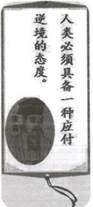 人类必须具备一种应付
逆境的态度。